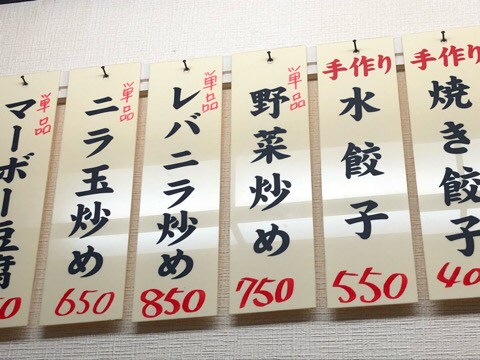 手作り
焼き餃子
手作り
水餃子
550
単品
野菜炒め
750
単品
レバニラ炒め
850
単品
ニラ玉炒め
650
単品
マーボー豆腐